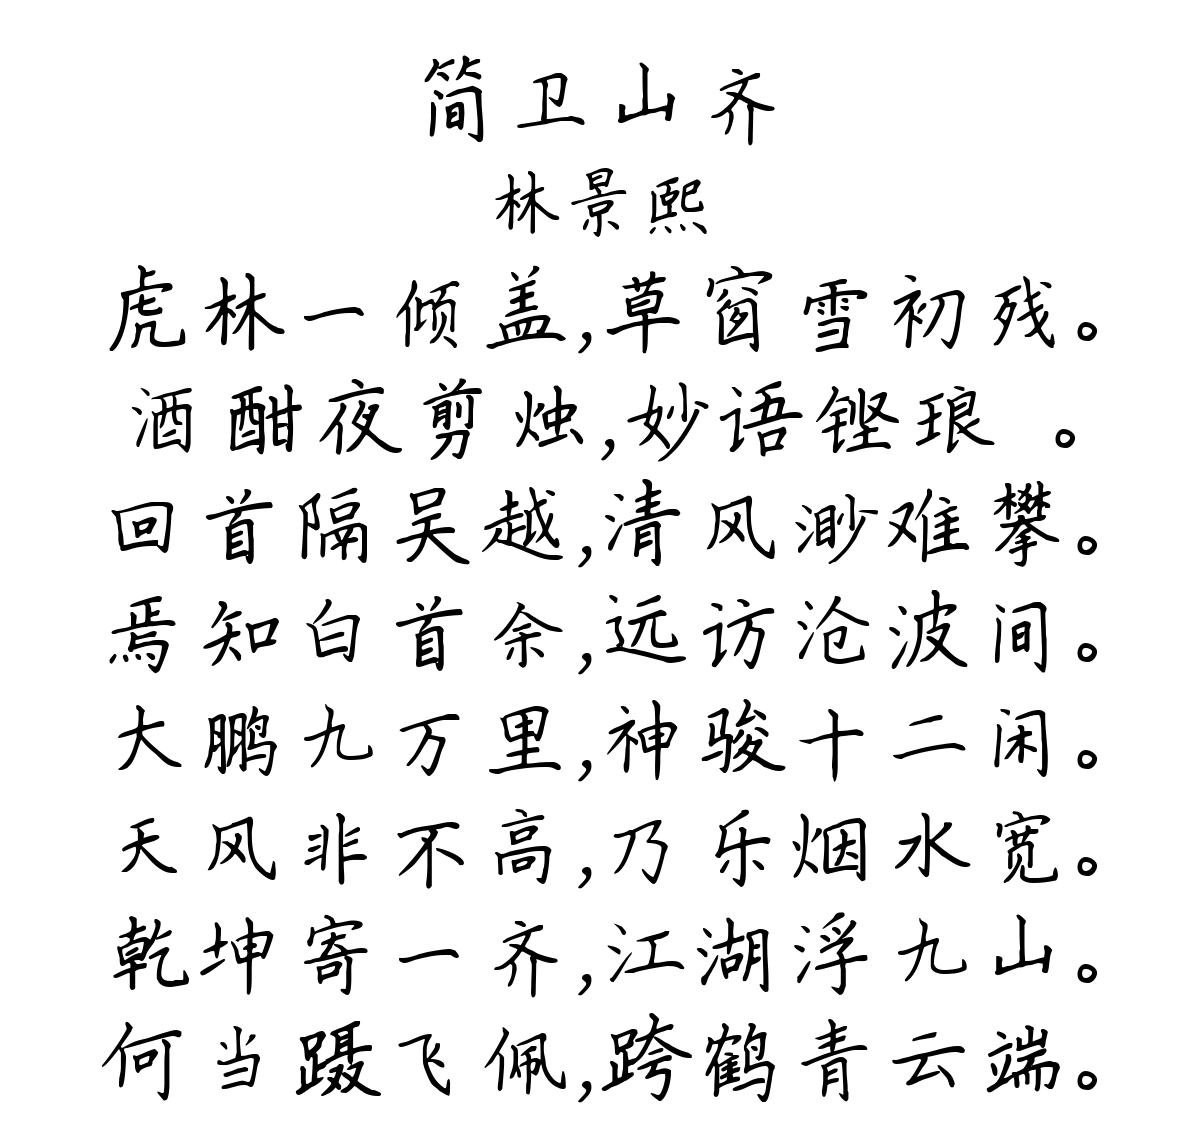 简卫山齐
林景熙
虎林一倾盖,草窗雪初残。
酒酣夜剪烛,妙语铿琅 。
回首隔吴越,清风渺难攀。
焉知白首余,远访沧波间。
大鹏九万里,神骏十二闲。
天风非不高,乃乐烟水宽。
乾坤寄一齐,江湖浮九山。
何当蹑飞佩,跨鹤青云端。